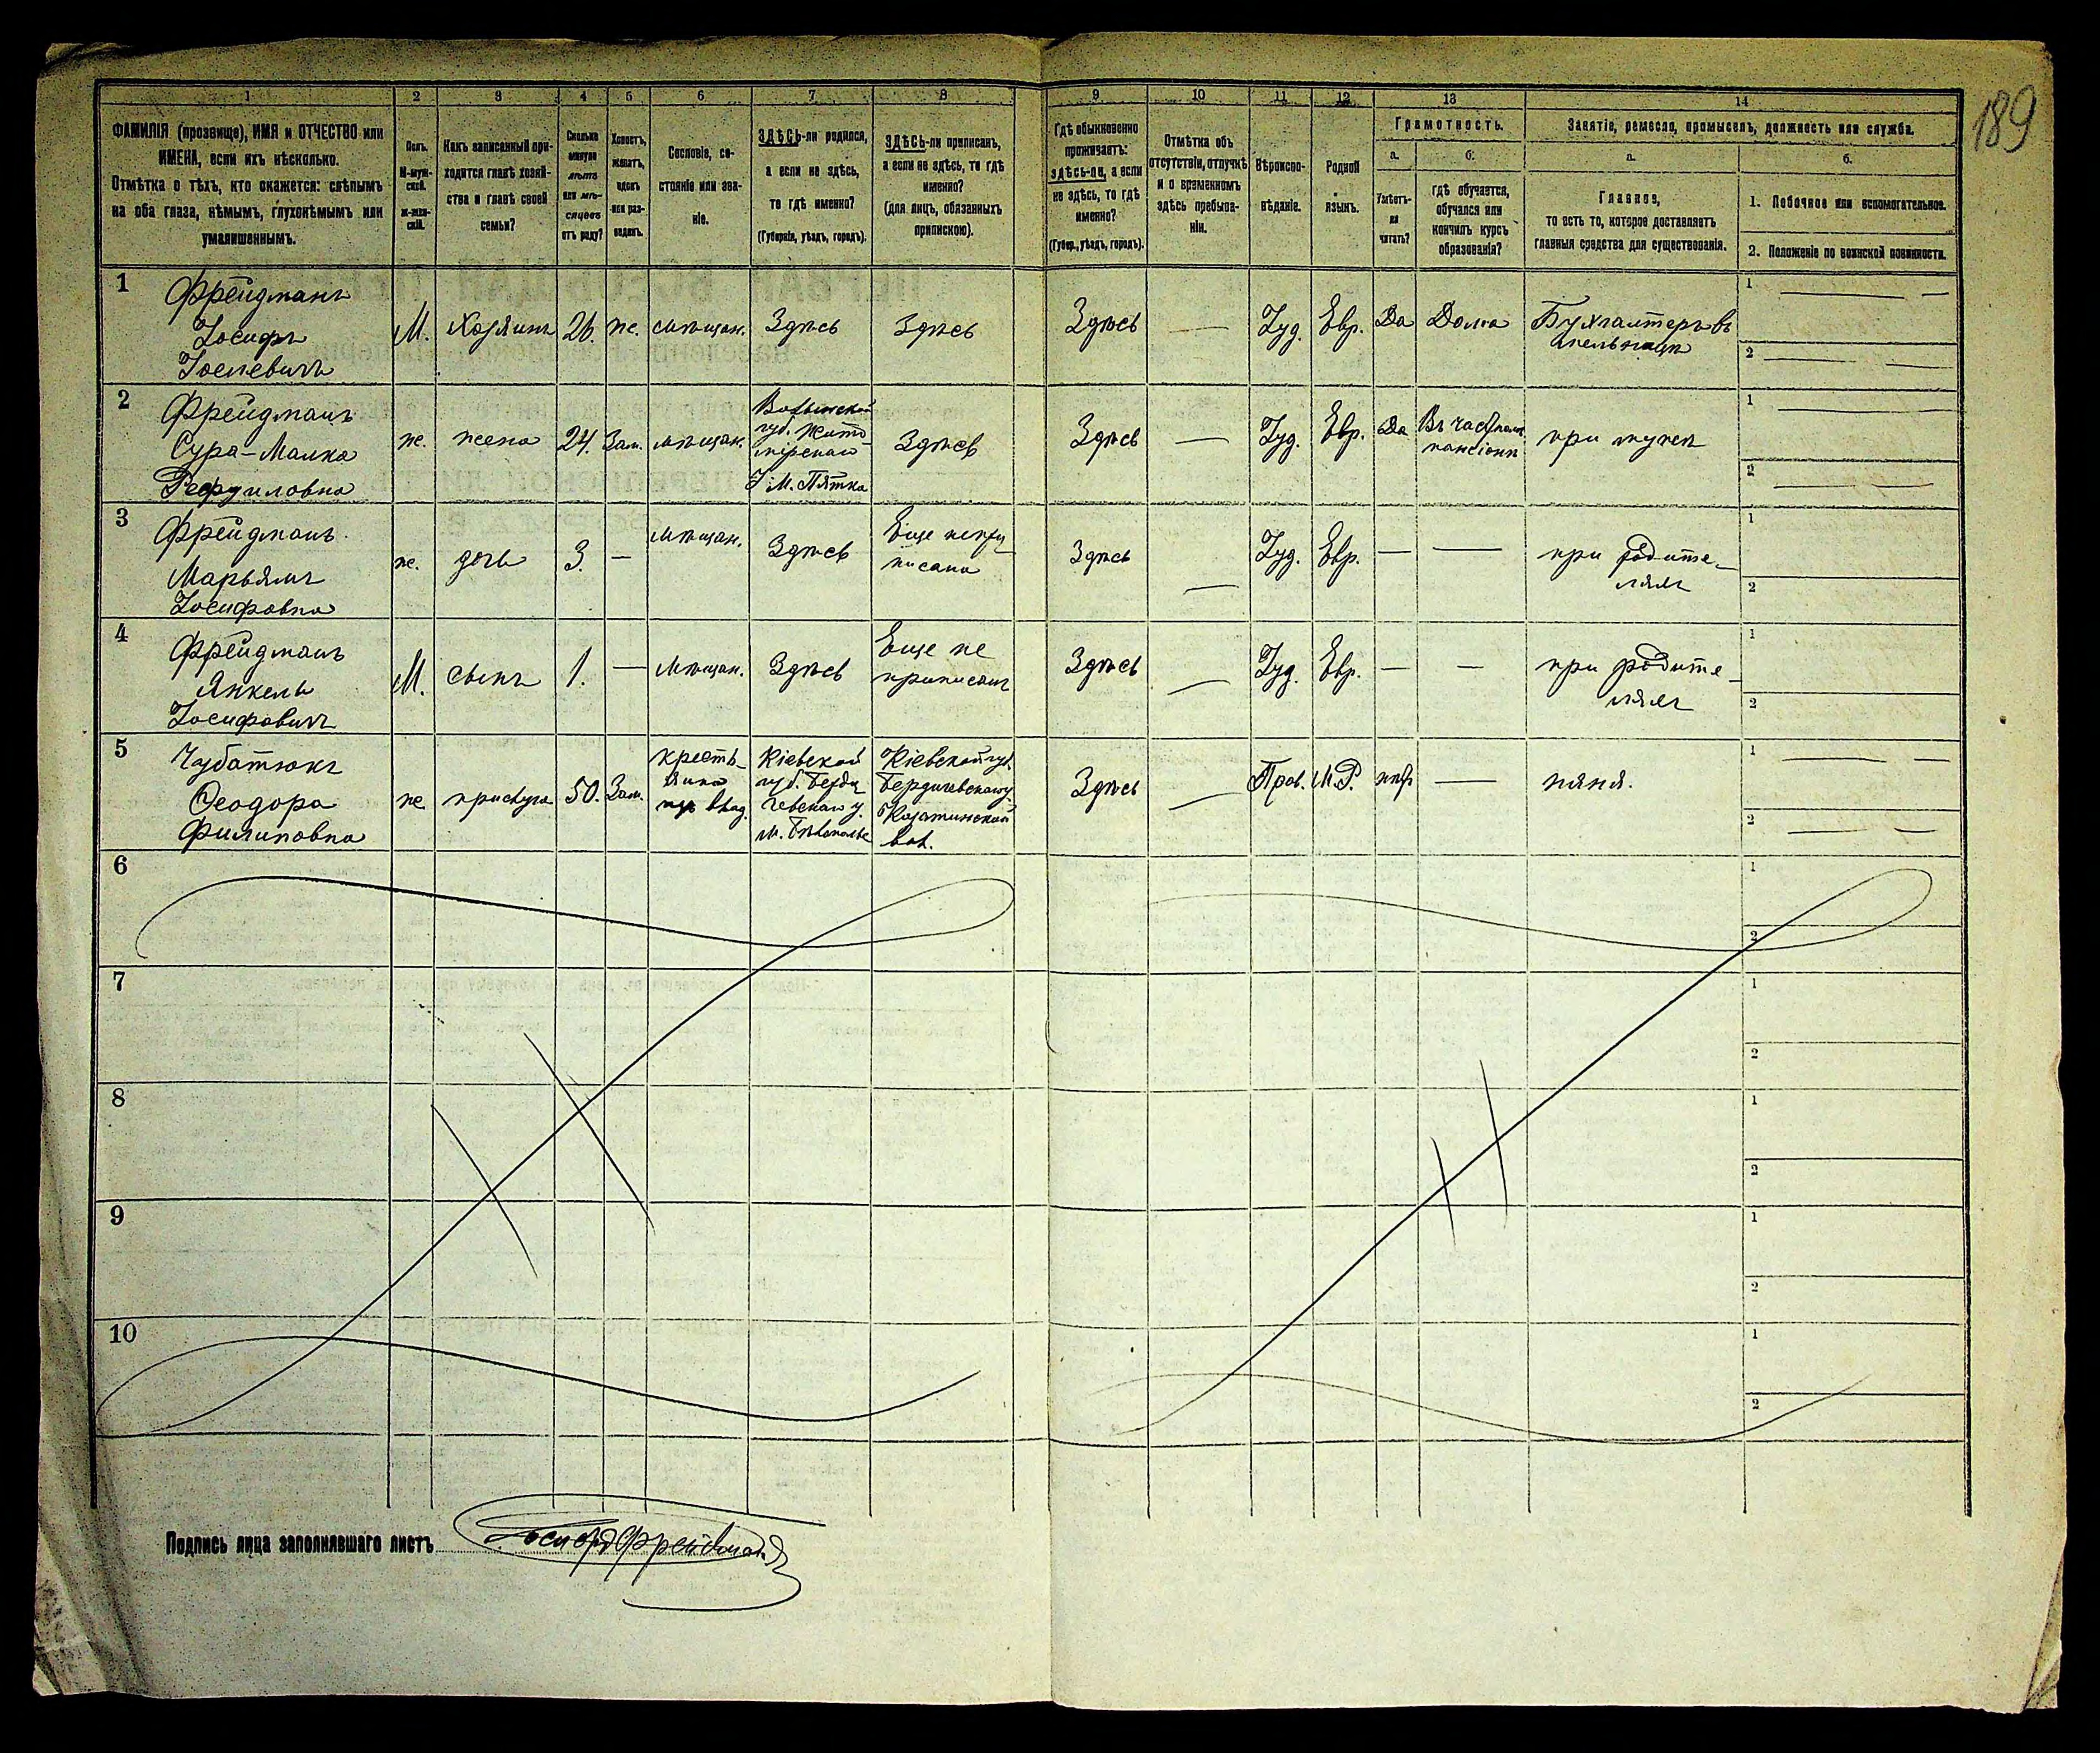 189
1 2 3 4 5 6 7 8 9 10 11 12 13 14
ФАМИЛІЯ (прозвище), ИМЯ и ОТЧЕСТВО или
ИМЕНА, если ихъ нѣсколько.
Отмѣтка о тѣхъ, кто окажется: слѣпымъ
на оба глаза, нѣмымъ, глухонѣмымъ или
умалишеннымъ.
Полъ.
М-муж-
ской.
Ж-жен-
скій.
Какъ записанный при-
ходится главѣ хозяй-
ства и главѣ своей
семьи?
Сколько
минуло
лѣтъ
или мѣ-
сяцевъ
отъ роду?
Холостъ,
женатъ,
вдовъ
или раз-
веденъ.
Сословіе, со-
стояніе или зва-
ніе.
ЗДѢСЬ-ли родился,
а если не здѣсь,
то гдѣ именно?
(Губернія, уѣздъ, городъ).
ЗДѢСЬ-ли приписанъ,
а если не здѣсь, то гдѣ
именно?
(для лицъ, обязанныхъ
припискою).
Гдѣ обыкновенно
проживаетъ:
здѣсь-ли, а если
не здѣсь, то гдѣ
именно?
(Губер., уѣздъ, городъ).
Отмѣтка объ
отсутствіи, отлучкѣ
и о временномъ
здѣсь пребыва-
ніи.
Вѣроиспо-
вѣданіе.
Родной
языкъ.
Грамотность.
а.
Умѣетъ-
ли
читать?
б.
гдѣ обучается,
обучался или
кончилъ курсъ
образованія?
Занятіе, ремесло, промыселъ, должность или служба.
а.
Главное,
то есть то, которое доставляетъ
главныя средства для существованія.
б.
1. Побочное или вспомогательное.
2. Положеніе по воинской повинности.
1
Фрейдманъ
Іосифъ
Іоселевичъ
М.
Хозяинъ
26.
же.
мѣщан.
Здѣсь
Здѣсь
Здѣсь
—
Іуд.
Евр.
Да
Дома
Бухгалтеръ въ
мельницѣ
1 — —
2 — —
2
Фрейдманъ
Сура-Малка
Рефуиловна
же.
жена
24.
Зам.
мѣщан.
Волынской
губ. Жито-
мірскаго
у М. Пятка
Здѣсь
Здѣсь
—
Іуд.
Евр.
Да
Въ частномъ
пансіонѣ
при мужѣ
1 —
2 — —
3
Фрейдманъ
Марьямъ
Іосифовна
же.
дочь
3.
—
мѣщан.
Здѣсь
Еще непри-
писана
Здѣсь
—
Іуд.
Евр.
—
—
при родите-
ляхъ
1
2
4
Фрейдманъ
Янкель
Іосифовичъ
М.
сынъ
1.
—
мѣщан.
Здѣсь
Еще не
приписанъ
Здѣсь
—
Іуд.
Евр.
—
—
при родите-
ляхъ
1
2
5
Чубатюкъ
Ѳеодора
Филиповна
же
прислуга
50.
Зам.
кресть-
янка
влад.
Кіевской
губ. Берди-
чевскаго у.
М. Бѣлополье
Кіевской губ.
Бердичевскаго у.
Козатинской
вол.
Здѣсь
—
Прав.
М.Р.
нѣтъ
—
няня.
1 — —
2 — —
6 1
2
7 1
2
8 1
2
9 1
2
10 1
2
Подпись лица заполнявшаго листъ
Іосифъ Фрейдманъ